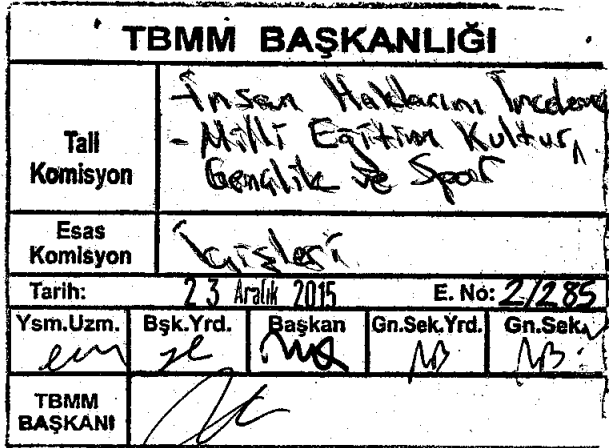 TBMM BAŞKANLIĞI
Tali Komisyon
- İnsan Haklarını İnceleme
- Milli Eğitim Kültür,
Gençlik ve Spor
Esas Komisyon
İçişleri
Tarih: 23 Aralık 2015 E. No: 2/285
Ysm.Uzm. Bşk.Yrd. Başkan Gn.Sek.Yrd. Gn.Sek.
TBMM BAŞKANI